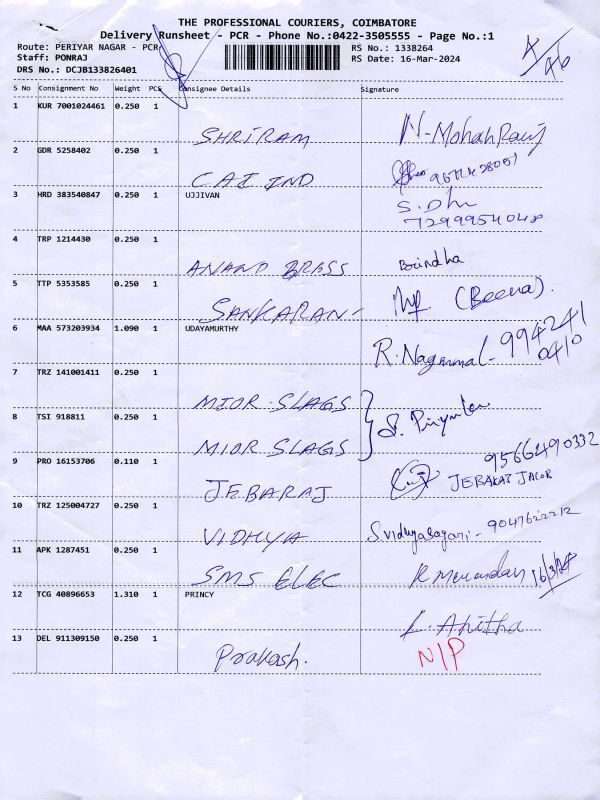 THE PROFESSIONAL COURIERS, COIMBATORE
Delivery Runsheet - PCR - Phone No.:0422-3505555 - Page No.:1
Route: PERIYAR NAGAR - PCR
RS No.: 1338264
Staff: PONRAJ
RS Date: 16-Mar-2024
DRS No.: DCJB133826401
S No Consignment No Weight PCS Consignee Details Signature
1 KUR 7001024461 0.250 1
SHRIRAM N-Mohan Rauj
2 GDR 5258402 0.250 1
CAI IND
3 HRD 383540847 0.250 1 UJJIVAN S.Dhu
7299954048
4 TRP 1214430 0.250 1
ANAND BRASS Brindha
5 TTP 5353585 0.250 1
SANKARAN (Beena).
6 MAA 573203934 1.090 1 UDAYAMURTHY
R.Nagammal- 994241
0410
7 TRZ 141001411 0.250 1
MIOR SLAGS
8 TSI 918811 0.250 1
MIOR SLAGS
9 PRO 16153706 0.110 1 9566490332
JEBARAJ JEBARAJ JACOB
10 TRZ 125004727 0.250 1
VIDHYA Svidhyasagari- 9047622212
11 APK 1287451 0.250 1
SMS ELEC 16/3/24
12 TCG 40896653 1.310 1 PRINCY
L.Anitha
13 DEL 911309150 0.250 1
Prakash. N/P